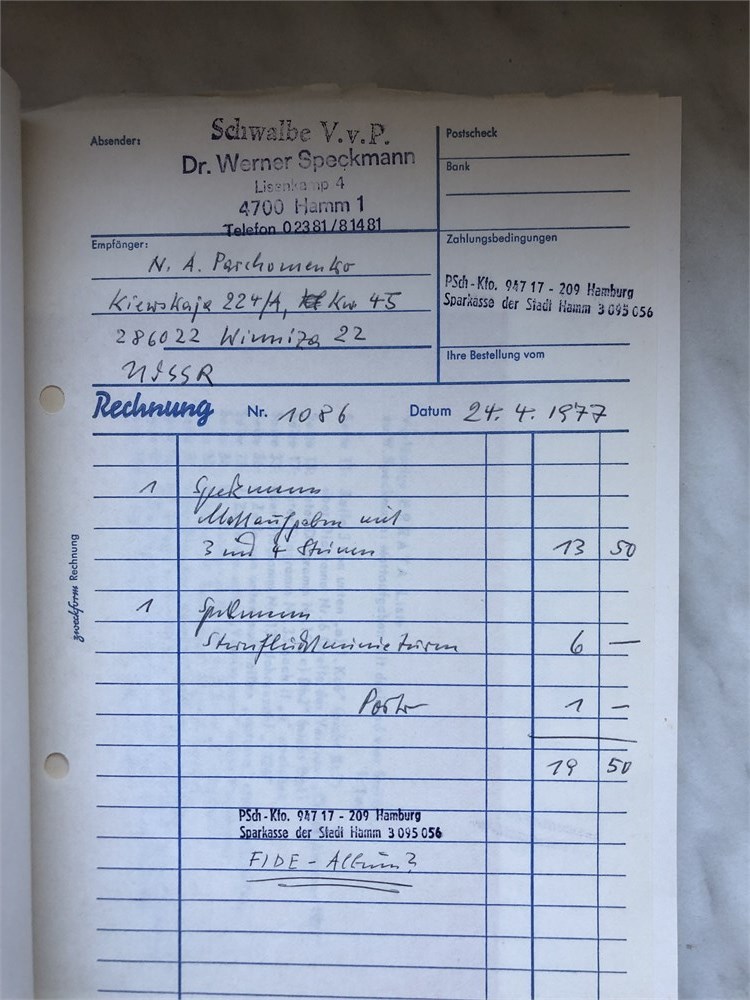 Absender:
Schwalbe V.v.P.
Dr. Werner Speckmann
Lisenkamp 4
4700 Hamm 1
Telefon 02381/81481
Postscheck
Bank
Zahlungsbedingungen
PSch-Kto. 947 17 - 209 Hamburg
Sparkasse der Stadt Hamm 3 095 056
Ihre Bestellung vom
Empfänger:
N. A. Parchomenko
Kiewskaja 224/A, Kw 45
286022 Winniza 22
UdSSR
Rechnung Nr. 1086 Datum 24. 4. 1977
1 Speckmann
Mattaufgaben mit
3 und 4 Steinen 13 50
1 Speckmann
6 —
Porto 1 —
19 50
PSch-Kto. 947 17 - 209 Hamburg
Sparkasse der Stadt Hamm 3 095 056
FIDE - Album?
zweckform Rechnung